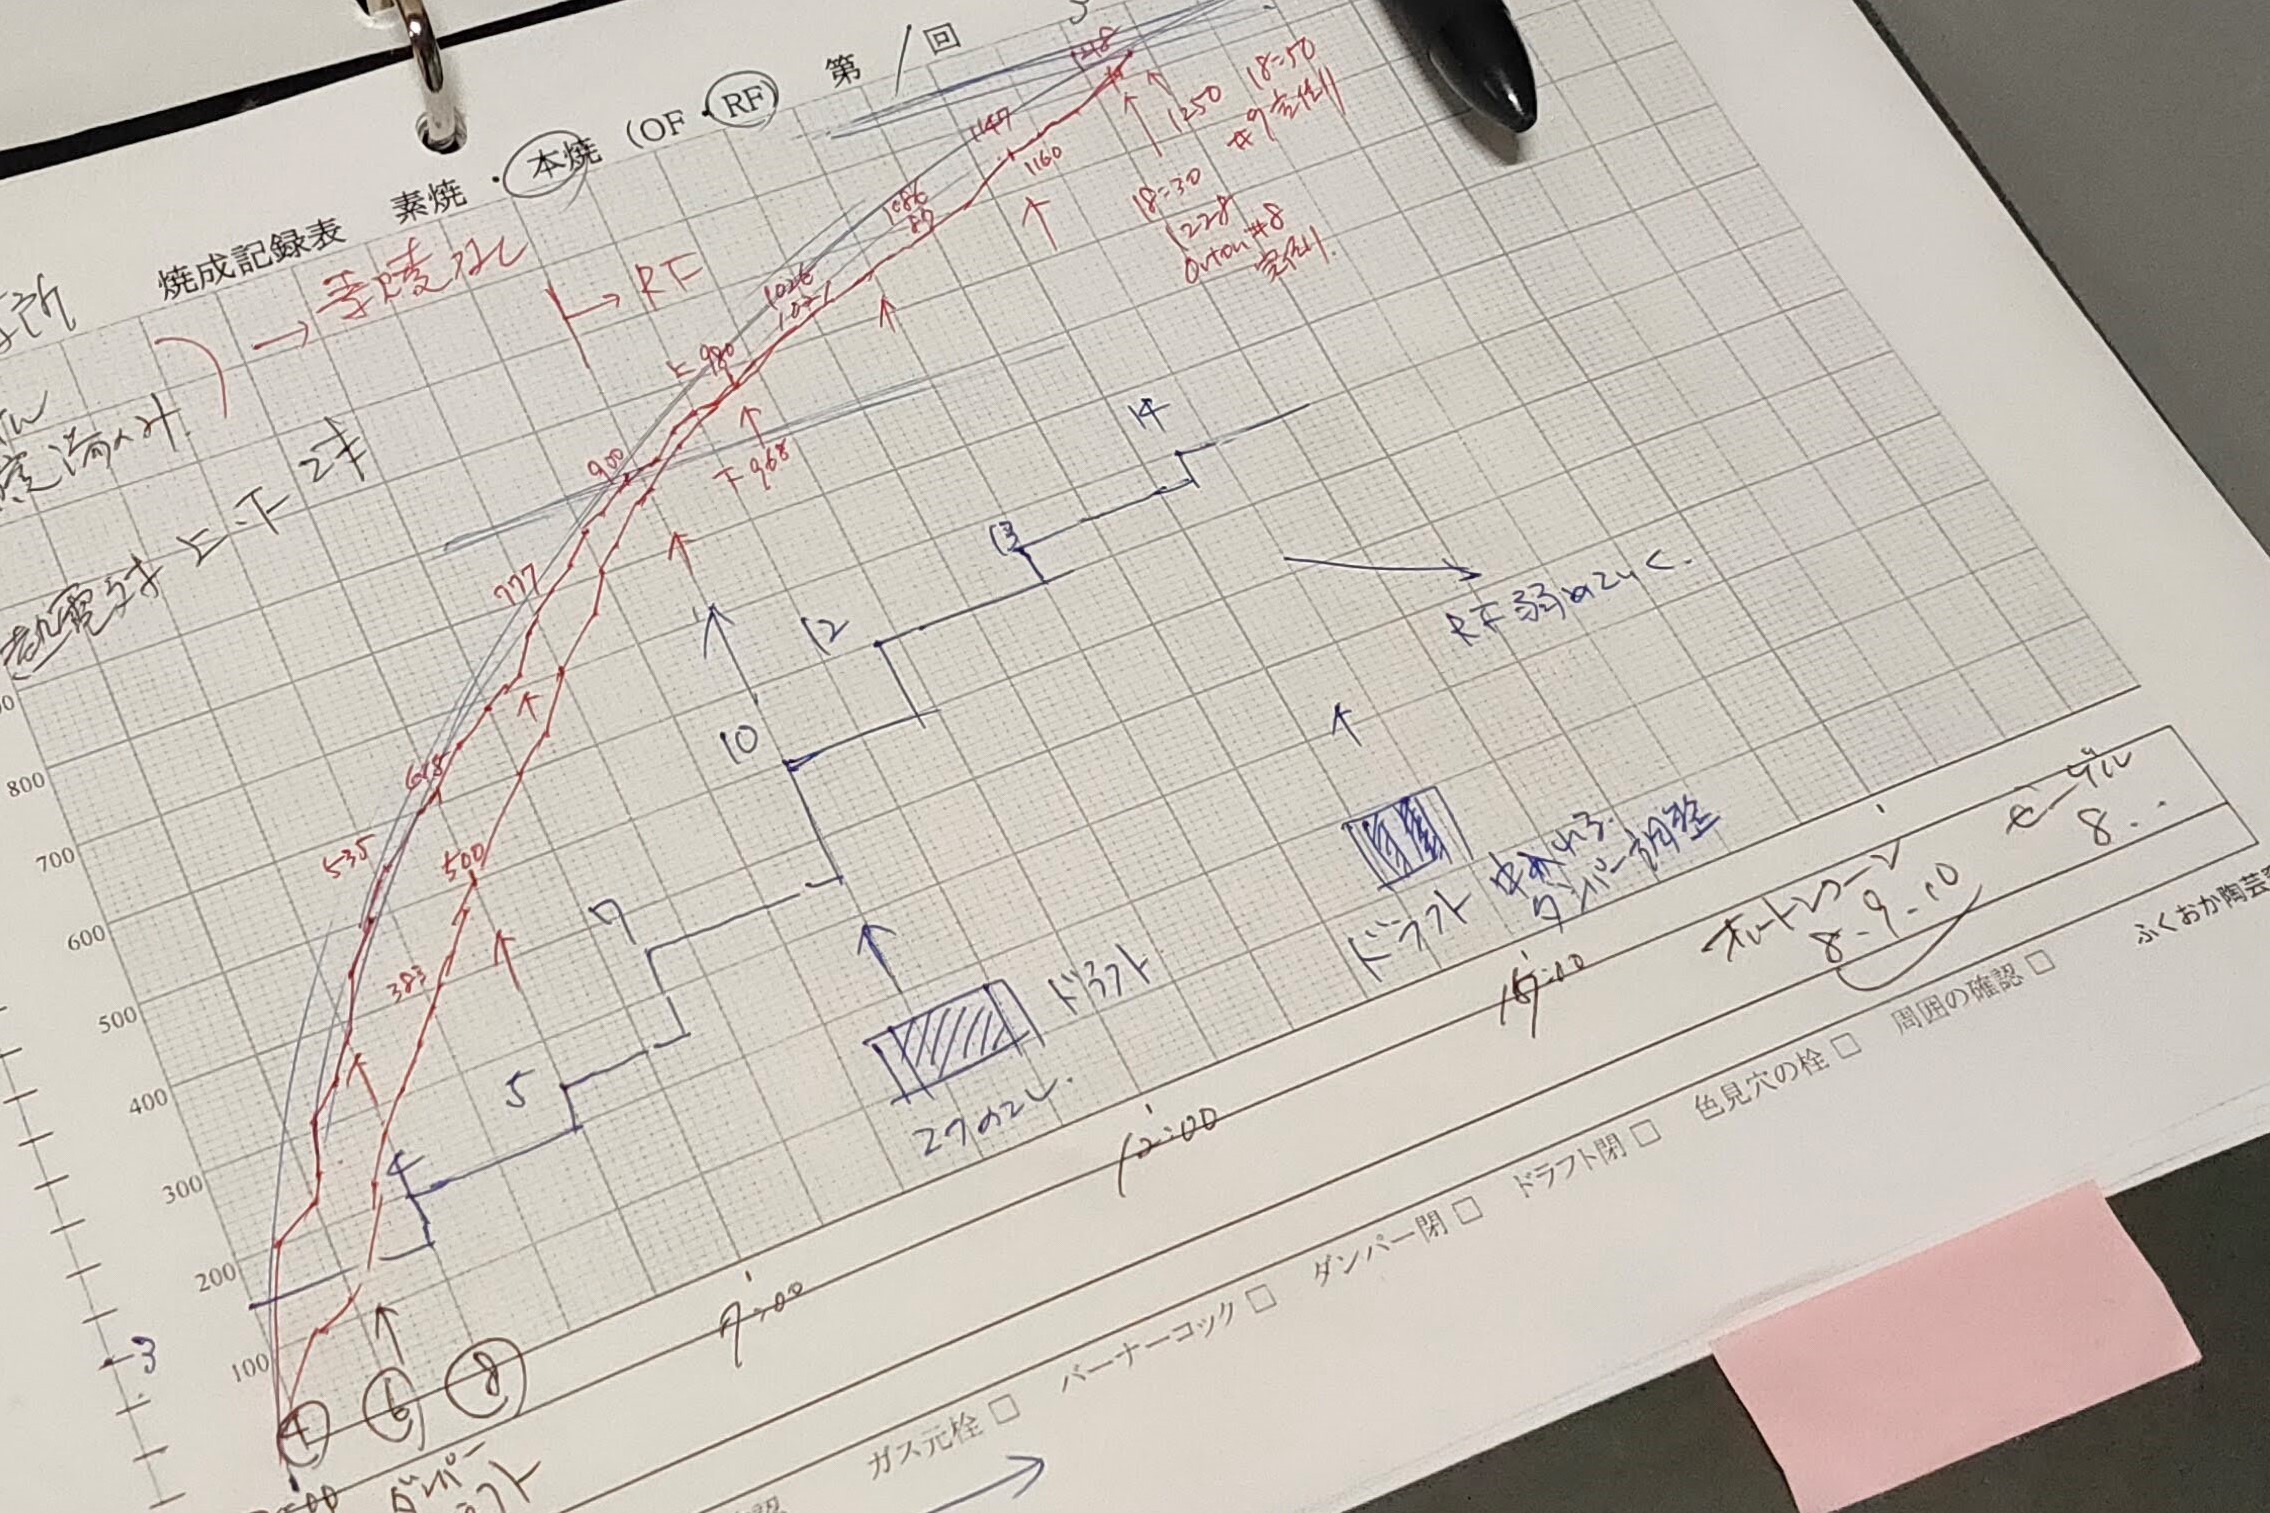 焼成記録表 素焼・本焼（OF・RF） 第 1 回
→ RF
熱電対 上・下 2本
148
1147
1160
1250 18=50
#9完倒
18=30
1228
Orton #8
完倒
1086
1026
1021
上 980
下 968
900
777
535
500
383
14
13
12
10
7
5
4
3
RF 弱めていく.
ドラフト
ドラフト
ダンパー調整
800
700
600
500
400
300
200
100
④ ⑥ ⑧
ダンパー
9:00
12:00
15:00
オルトンコーン
8.9.10
ゼーゲル
8.
ガス元栓 □ バーナーコック □ ダンパー閉 □ ドラフト閉 □ 色見穴の栓 □ 周囲の確認 □
ふくおか陶芸窯